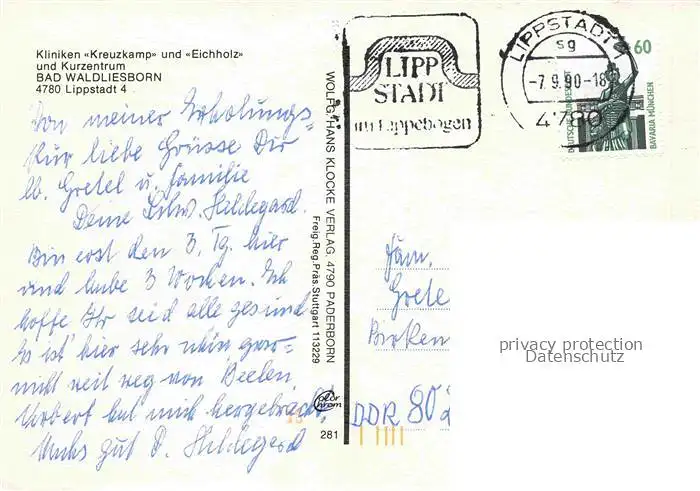 Kliniken «Kreuzkamp» und «Eichholz»
und Kurzentrum
BAD WALDLIESBORN
4780 Lippstadt 4
Von meiner Erholungs-
Kur liebe Grüsse Dir
lb. Gretel u. Familie
Deine Schw. Hildegard.
Bin erst den 3. Tg. hier
und habe 3 Wochen. Ich
hoffe Ihr seid alle gesund
Es ist hier sehr ruhig gar-
nicht weit weg von Beelen
Norbert hat mich hergebracht,
Machs gut D. Hildegard
WOLFG. HANS KLOCKE VERLAG, 4790 PADERBORN
Freig. Reg. Präs. Stuttgart 113229
color chrom
281
LIPP
STADT
im Lippebogen
LIPPSTADT 1
sg
-7.9.90-18
4780
60
DEUTSCHE BUNDESPOST
BAVARIA MÜNCHEN
Fam.
Grete
Birken
DDR 80
privacy protection
Datenschutz